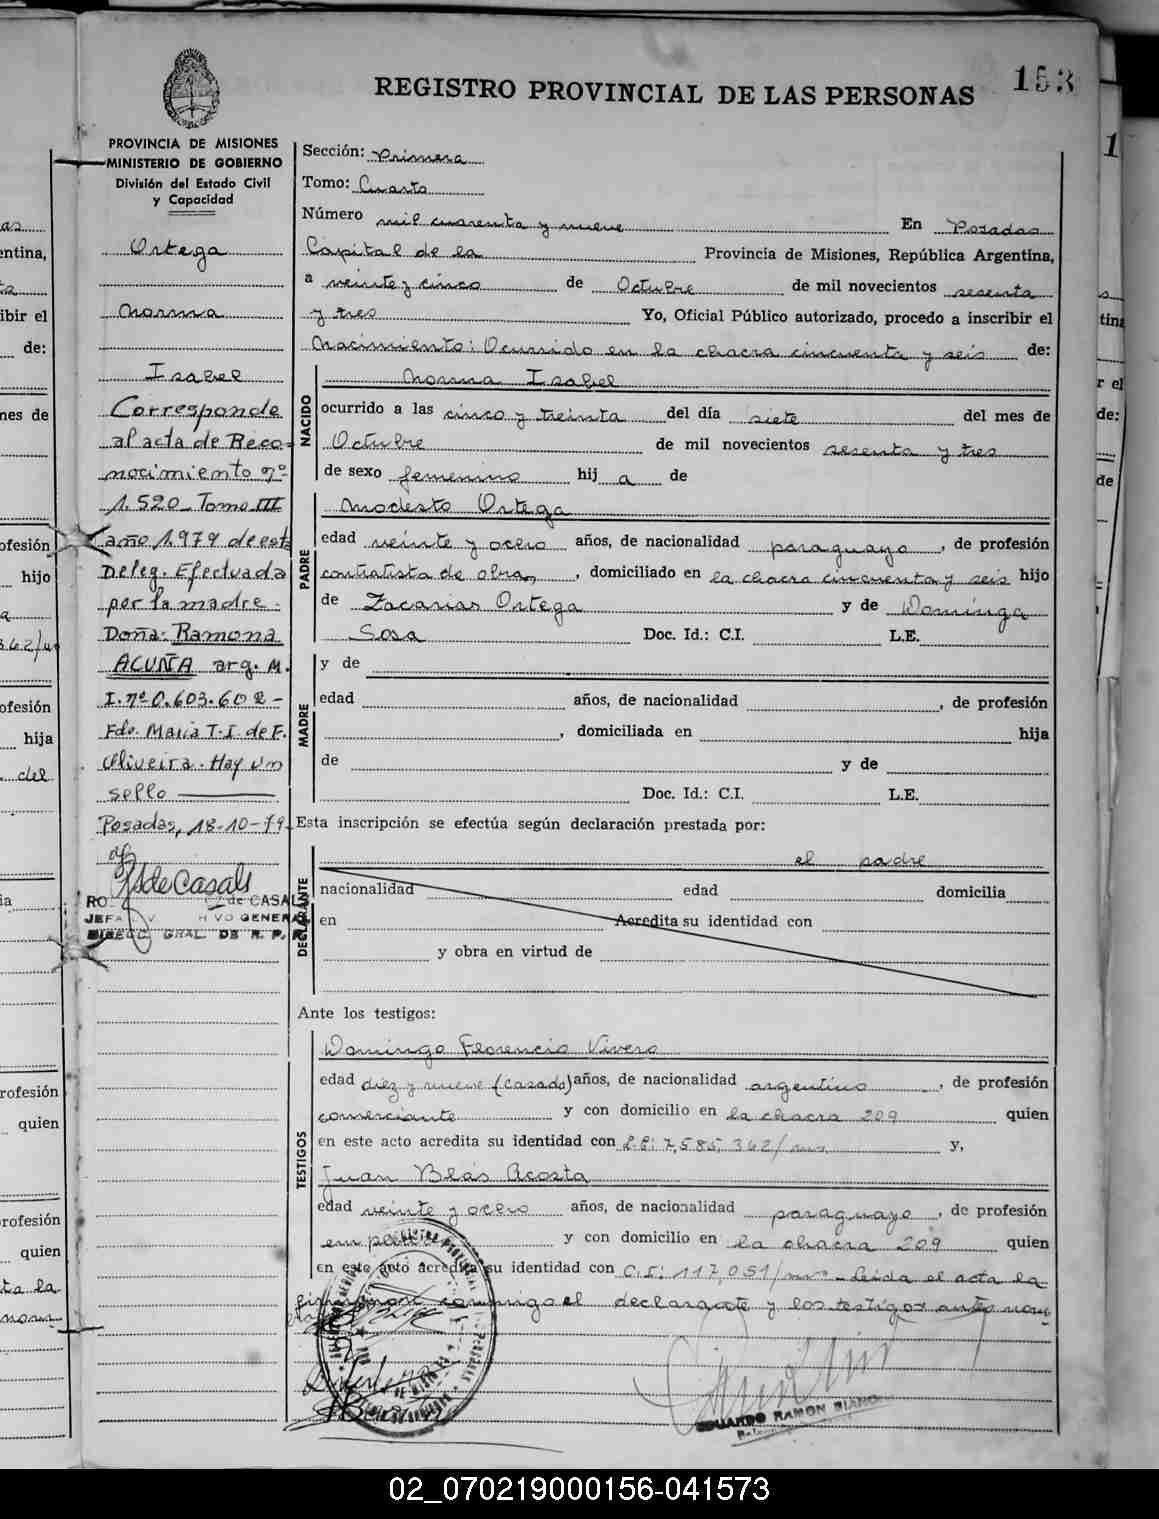 REGISTRO PROVINCIAL DE LAS PERSONAS
153
PROVINCIA DE MISIONES
MINISTERIO DE GOBIERNO
División del Estado Civil
y Capacidad
Ortega
Norma
Isabel
Corresponde
al acta de Reco-
nocimiento nº
1.520 Tomo III
año 1.979 de esta
Deleg. Efectuada
por la madre.
Doña: Ramona
ACUÑA arg. M.
I. nº 0.603.602-
Fdo. Maria T. I. de F.
Oliveira. Hay un
sello
Posadas, 18-10-79.
de Casals
de CASALS
GENERAL
GRAL. DE R. P. P.
Sección: Primera
Tomo: Cuarto
Número mil cuarenta y nueve En Posadas
Capital de la Provincia de Misiones, República Argentina,
a veinte y cinco de Octubre de mil novecientos sesenta
y tres Yo, Oficial Público autorizado, procedo a inscribir el
Nacimiento: Ocurrido en la chacra cincuenta y seis de:
NACIDO
Norma Isabel
ocurrido a las cinco y treinta del día siete del mes de
Octubre de mil novecientos sesenta y tres
de sexo femenino hij a de
PADRE
Modesto Ortega
edad veinte y ocho años, de nacionalidad paraguayo, de profesión
contratista de obra, domiciliado en la chacra cincuenta y seis hijo
de Zacarias Ortega y de Dominga
Sosa Doc. Id.: C.I. L.E.
MADRE
y de
edad años, de nacionalidad, de profesión
, domiciliada en hija
de y de
Doc. Id.: C.I. L.E.
Esta inscripción se efectúa según declaración prestada por:
DECLARANTE
el padre
nacionalidad edad domicilia
en Acredita su identidad con
y obra en virtud de
Ante los testigos:
TESTIGOS
Domingo Florencio Vivero
edad diez y nueve (casado) años, de nacionalidad argentino, de profesión
comerciante y con domicilio en la chacra 209 quien
en este acto acredita su identidad con L.E: 7,585,362/ y,
Juan Blás Acosta
edad veinte y ocho años, de nacionalidad paraguayo, de profesión
y con domicilio en la chacra 209 quien
en este acto acredita su identidad con C.I: 117,051/ Leida el acta la
conmigo el declarante y los testigos antes nom
EDUARDO RAMON
02_070219000156-041573